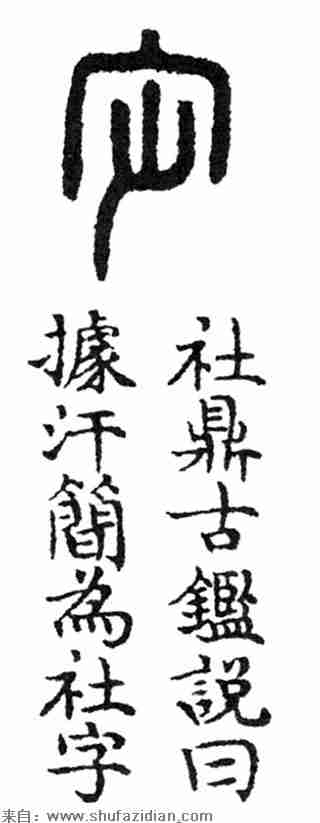 社鼎古鑑説曰
據汗簡為社字
来自：www.shufazidian.com